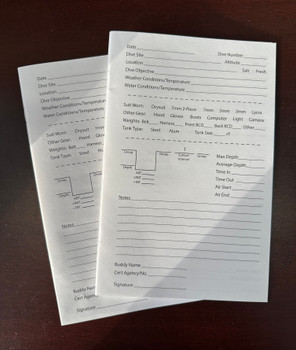 Date Dive Number
Dive Site
Location Altitude
Dive Objective Salt Fresh
Weather Conditions/Temperature
Water Conditions/Temperature
Suit Worn: Drysuit 7mm 2-Piece 7mm 5mm 3mm Lycra
Other Gear: Hood Gloves Boots Computer Light Camera
Weights: Belt Harness Front BCD Back BCD Other
Tank Type: Steel Alum Tank Size of
Surface
Interval
Depth
Max Depth
Average Depth
Time In
Time Out
Air Start
Air End
Notes
Buddy Name
Cert Agency/No.
Signature
Date
Dive Site
Location
Dive Objective
Weather Conditions/Temperature
Water Conditions/Temperature
Suit Worn: Drysuit
Other Gear: Hood
Weights: Belt Harness
Tank Type: Steel
Depth
Notes
Buddy Name
Cert Agency
Signature